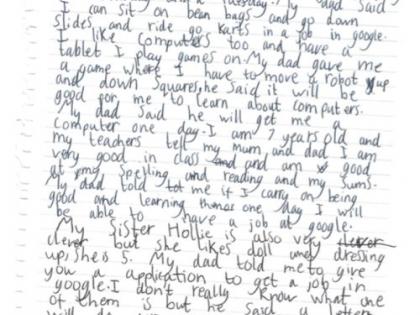 Tuesday. My dad said
I can sit on bean bags and go down
slides and ride go karts in a job in google.
I like computers too and have a
tablet I play games on. My dad gave me
a game where I have to move a robot up
and down squares, he said it will be
good for me to learn about computers.
My dad said he will get me a
computer one day. I am 7 years old and
my teachers tell my mum and dad I am
very good in class and and am good
at my spelling and reading and my sums.
My dad told me if I carry on being
good and learning one day I will
be able to have a job at google.
My sister Hollie is also very clever
clever but she likes doll and dressing
up, she is 5. My dad told me to give
you a application to get a job in
google. I don't really know what one
of them is but he said a letter
will do